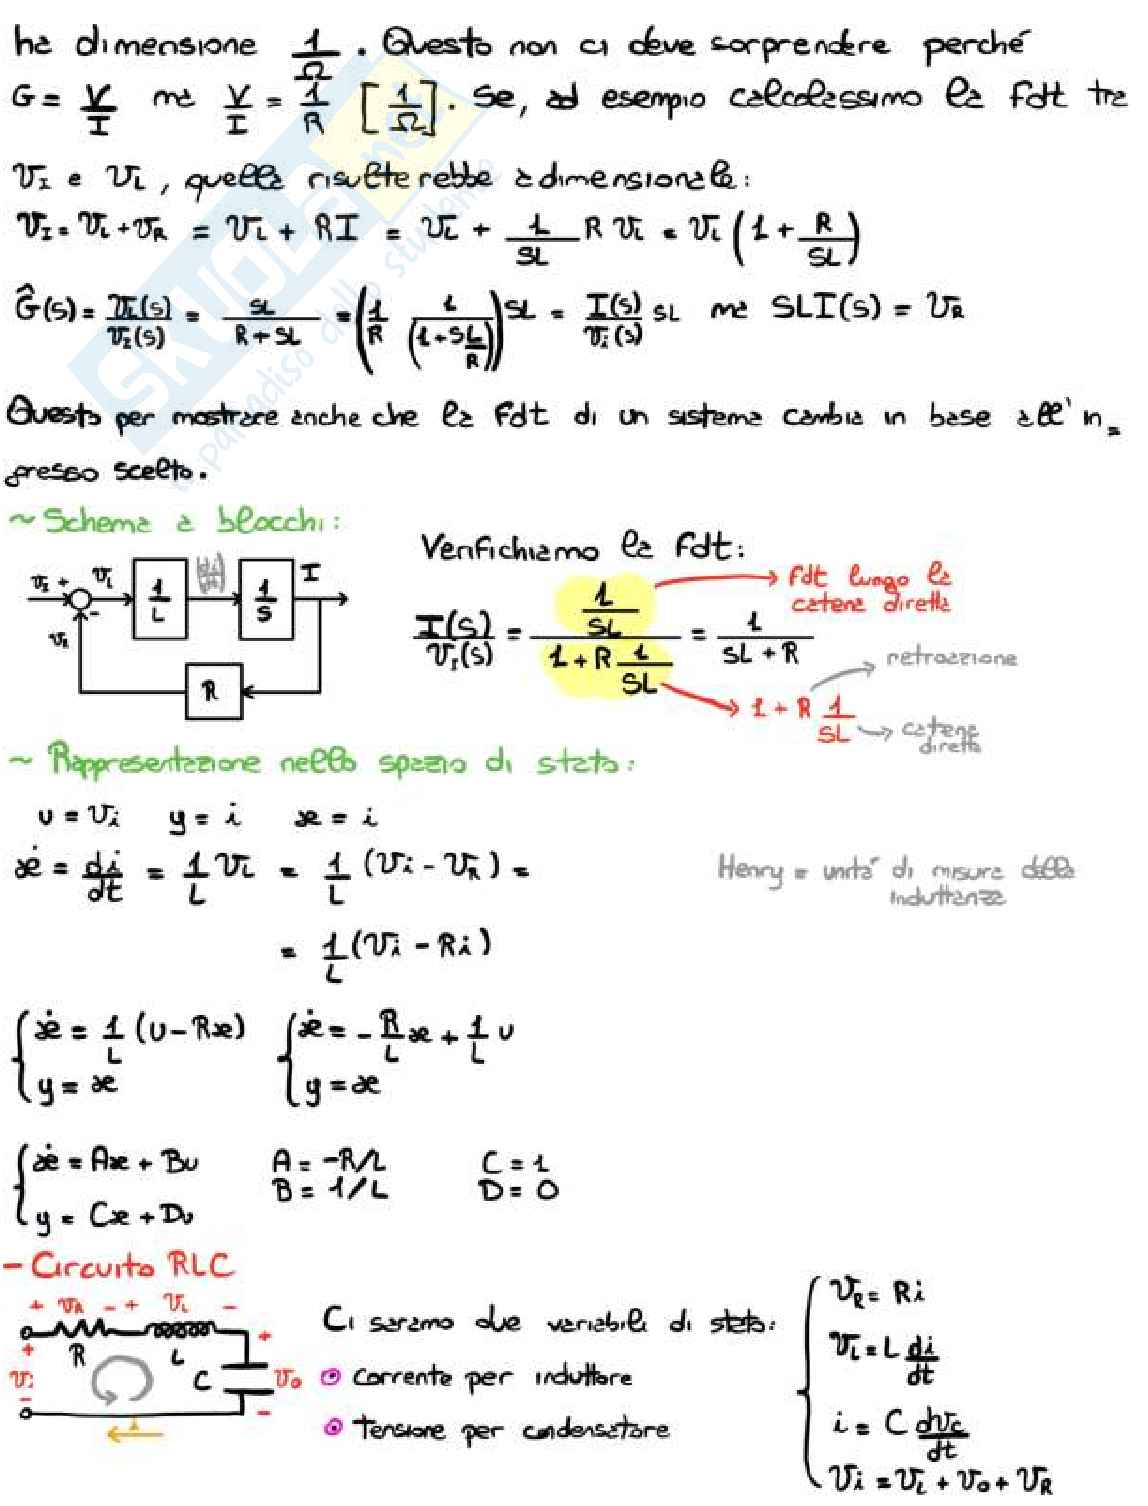 ha dimensione 1/Ω. Questo non ci deve sorprendere perché
G = V/I ma V/I = 1/R [1/Ω]. Se, ad esempio calcolassimo la Fdt tra
V_I e V_L, quella risulterebbe adimensionale:
V_I = V_L + V_R = V_L + RI = V_L + 1/SL R V_L = V_L (1 + R/SL)
Ĝ(s) = V_L(s)/V_I(s) = SL/(R + SL) = (1/R 1/(1+S L/R)) SL = I(s)/V_i(s) SL ma SLI(s) = V_R
Questo per mostrare anche che la Fdt di un sistema cambia in base all'in=
gresso scelto.
~ Schema a blocchi:
Verifichiamo la Fdt:
V_I + - V_L 1/L di/dt 1/S I
V_R
R
I(s)/V_I(s) = (1/SL)/(1 + R 1/SL) = 1/(SL + R)
Fdt lungo la
catena diretta
retroazione
1 + R 1/SL
catena
diretta
~ Rappresentazione nello spazio di stato:
u = V_i y = i x = i
ẋ = di/dt = 1/L V_L = 1/L (V_i - V_R) =
Henry = unità di misura della
induttanza
= 1/L (V_i - Ri)
{ ẋ = 1/L (u - Rx) { ẋ = - R/L x + 1/L u
y = x y = x
{ ẋ = Ax + Bu A = -R/L C = 1
y = Cx + Du B = 1/L D = 0
- Circuito RLC
+ V_R - + V_L -
R L C
+ V_i -
+ V_o -
i
Ci saranno due variabili di stato:
corrente per induttore
tensione per condensatore
{ V_R = Ri
V_L = L di/dt
i = C dV_C/dt
V_i = V_L + V_o + V_R
SKUOLA.net
il paradiso dello studente